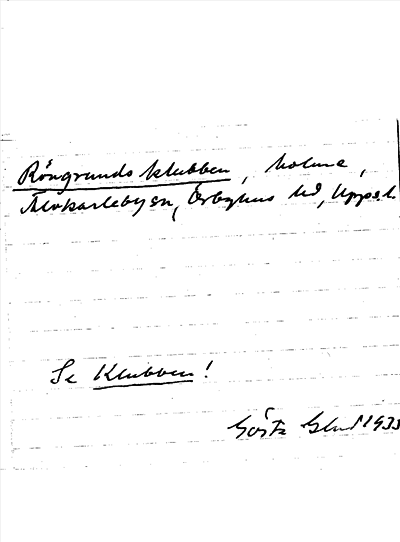 Röngrundsklubben, holme,
Älvkarlebysn, Örbyhus hd, Uppsl.
Se Klubben!
Gösta 1933